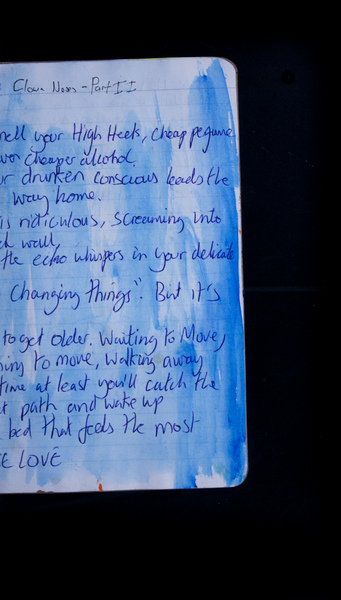 Clown Noses - Part II
smell your High Heels, cheap perfume
over cheaper alcohol.
your drunken conscious leads the
way home.
is ridiculous, screaming into
wall,
the echo whispers in your delicate
Changing things". But it's
to get older. Waiting to Move,
to move, walking away
time at least you'll catch the
path and wake up
bed that feels the most
LOVE